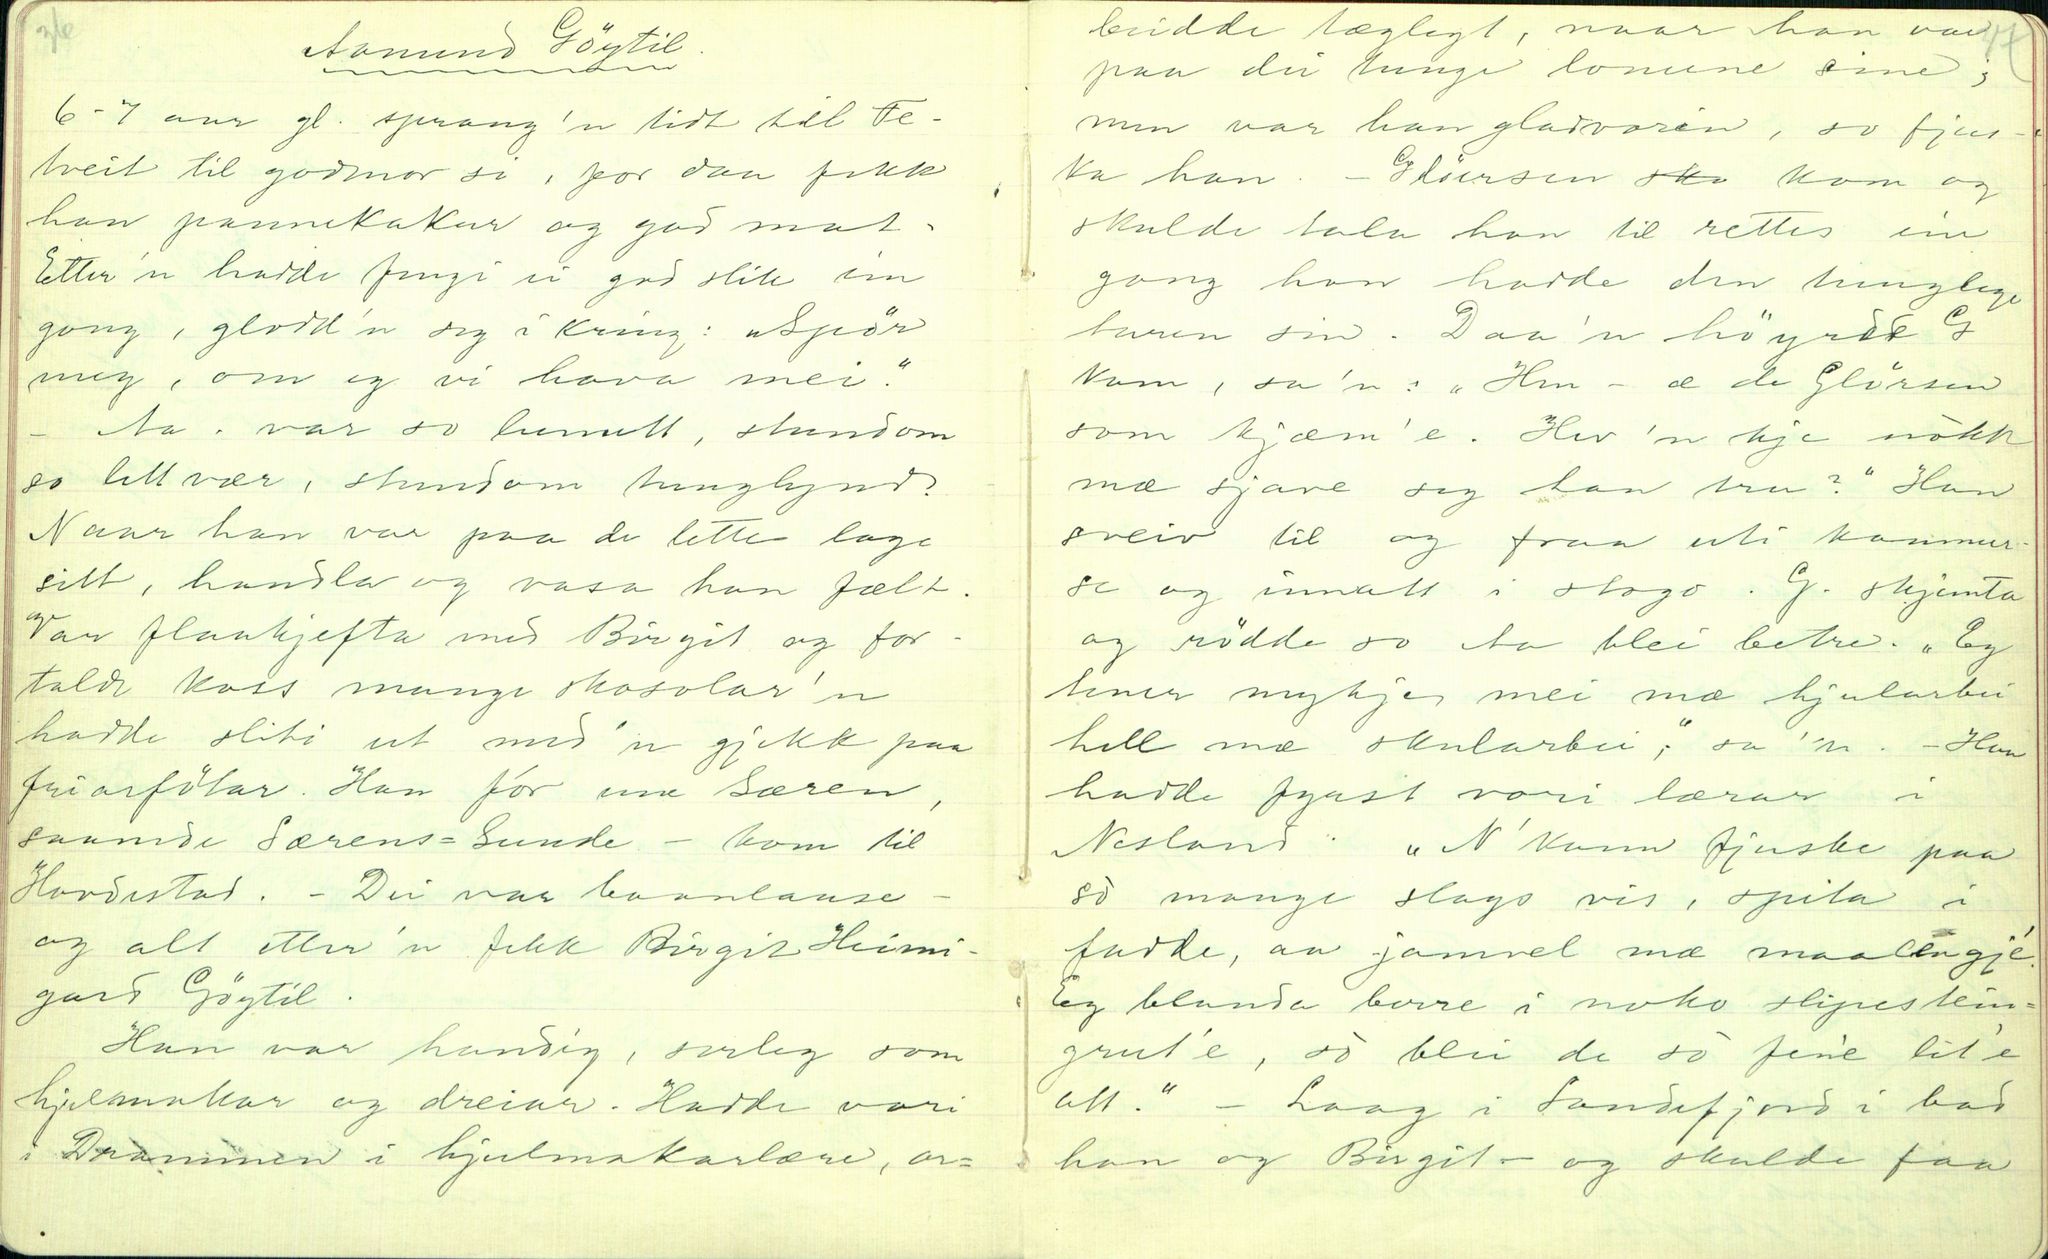 Aamund Göytil.
6-7 aar gl. sprang'n tidt til Te-
tveit til godmor si, for daa fekk
han pannekakur og god mat.
Etter'n hadde fengi ei god slik ein
gong, glodd'n seg i kring: "Spör
meg, om eg vi hava mei."
- Aa. var so lunutt, stundom
so lettvær, stundom tunglynd.
Naar han var paa de lette lage
sitt, handla og vasa han fælt.
Var flaakjefta med Birgit og for-
talde koss mange skosolar'n
hadde sliti ut med'n gjekk paa
friarfötar. Han fór um Særen,
saamde Særens=Sunde - kom til
Hovdestad. - Dei var baanlause -
og alt etter'n fekk Birgit Heimi-
gard Göytil.
Han var handig, serleg som
hjulmakar og dreiar. Hadde vori
i Drammen i hjulmakarlære, ar=
47
beidde tæglegt, naar han var
paa dei tunge lonene sine;
men var han gladvoren, so fjus-
ka han. - Glöersen sko kom og
skulde tala han til rettes ein
gong han hadde den tunglege
turen sin. Daa'n höyrde G
kom, sa'n: "Hm - æ de Glörsen
som kjæm'e. Hev'n kje nökk
mæ sjave seg han tru?" Han
sveiv til og fraa uti kammer-
se og innatt i stogo. G. skjemta
og rödde so Aa blei betre. "Eg
tener mykje mei mæ hjularbei
hell mæ skularbei," sa'n. - Han
hadde fyust vori lærar i
Nesland. "N'kann fjuske paa
sò mange slags vis, spita i
fadde, aa jamvel mæ maalengjé.
Eg blanda berre i noko slipestein=
grut'e, sò blei de sò fine lit'e
att." - Laag i Sandefjord i bad
han og Birgit - og skulde faa